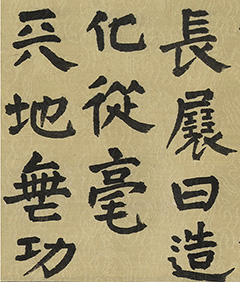 長展曰造
化從毫
兲地無功